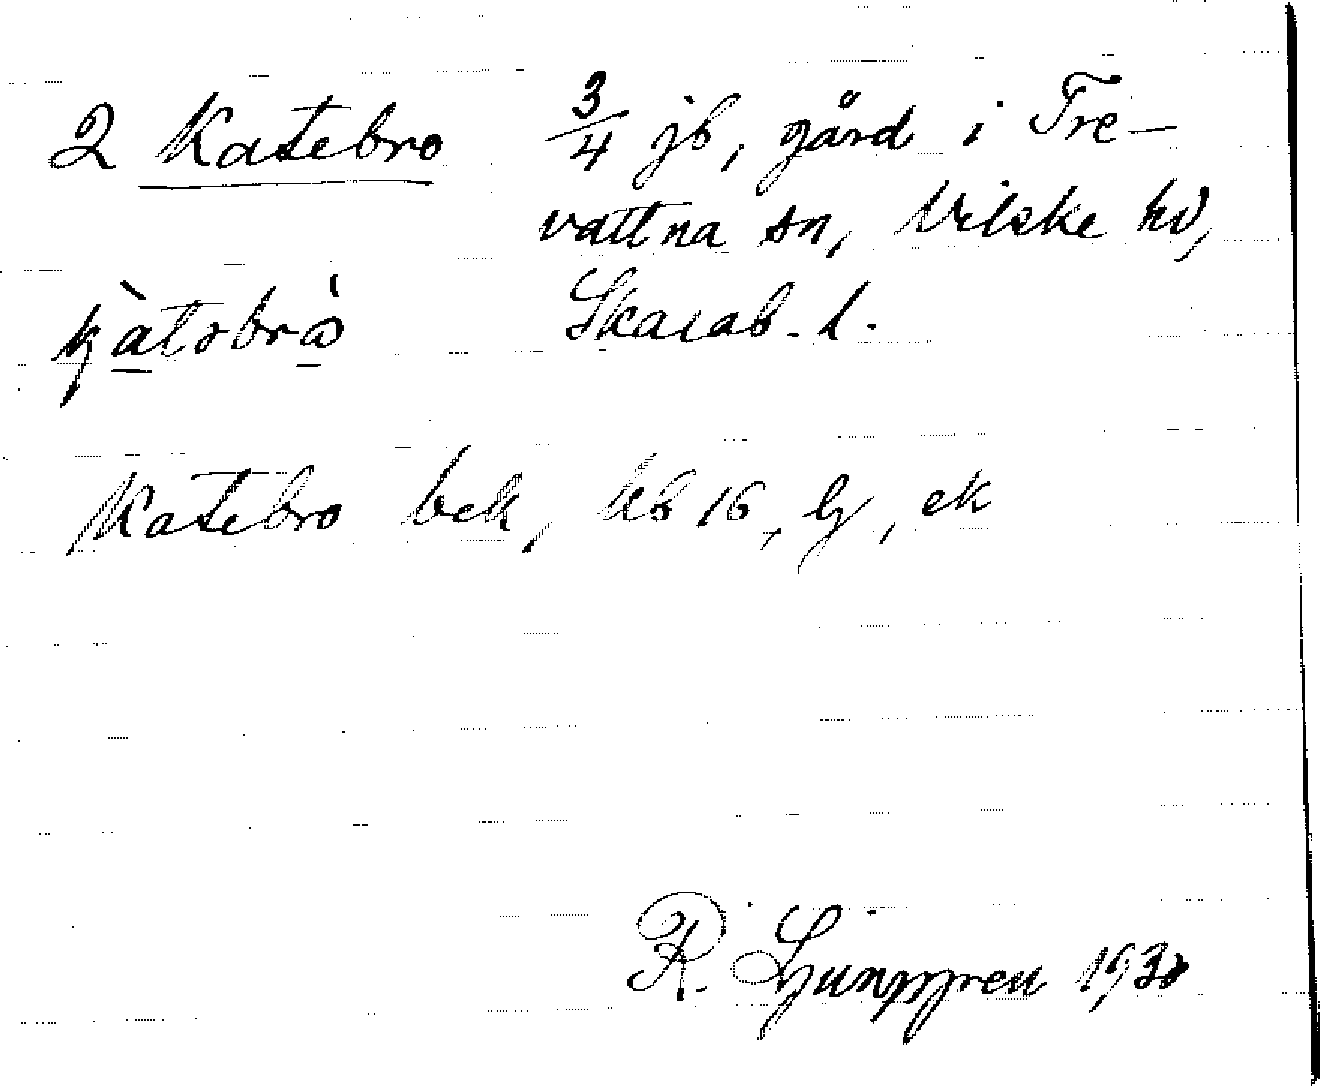 2 Katebro 3/4 jb, gård i Tre-
vattna sn, Vilske hd,
Skarab. l.
Katebro bek, kb 16, lg, ek
R. Ljunggren 1930